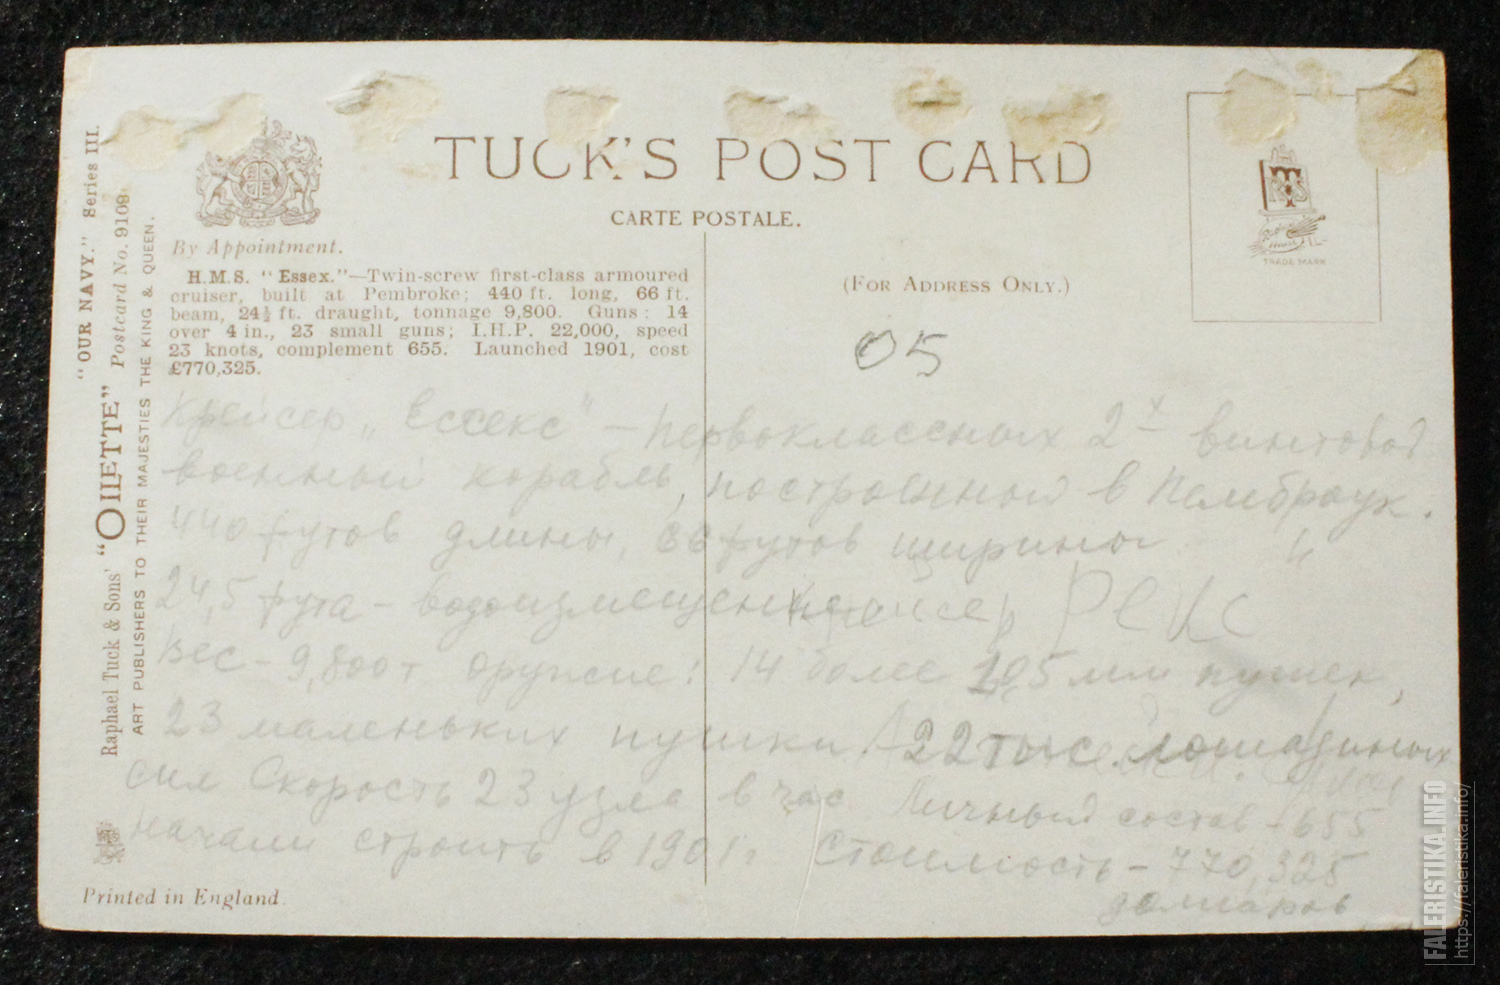 TUCK'S POST CARD
CARTE POSTALE.
(FOR ADDRESS ONLY.)
TRADE MARK
By Appointment.
H.M.S. "Essex."—Twin-screw first-class armoured
cruiser, built at Pembroke; 440 ft. long, 66 ft.
beam, 24½ ft. draught, tonnage 9,800. Guns: 14
over 4 in., 23 small guns; I.H.P. 22,000, speed
23 knots, complement 655. Launched 1901, cost
£770,325.
"OUR NAVY." Series III.
Raphael Tuck & Sons' "OILETTE" Postcard No. 9109
ART PUBLISHERS TO THEIR MAJESTIES THE KING & QUEEN.
05
Крейсер „Ессекс" – Первоклассных 2х винтовой
военный корабль, построенный в Пембраук.
440 футов длины, 66 футов ширины
24,5 фута – водоизмещение
крейсер Рекс
Вес – 9,800т оружие: 14 более 105 мм пушек,
23 маленьких пушки 22 тыс. лошадиных
сил Скорость 23 узла в час Личный состав – 655
начали строить в 1901г Стоимость – 770,325
долларов
Printed in England
FALERISTIKA.INFO
https://faleristika.info/